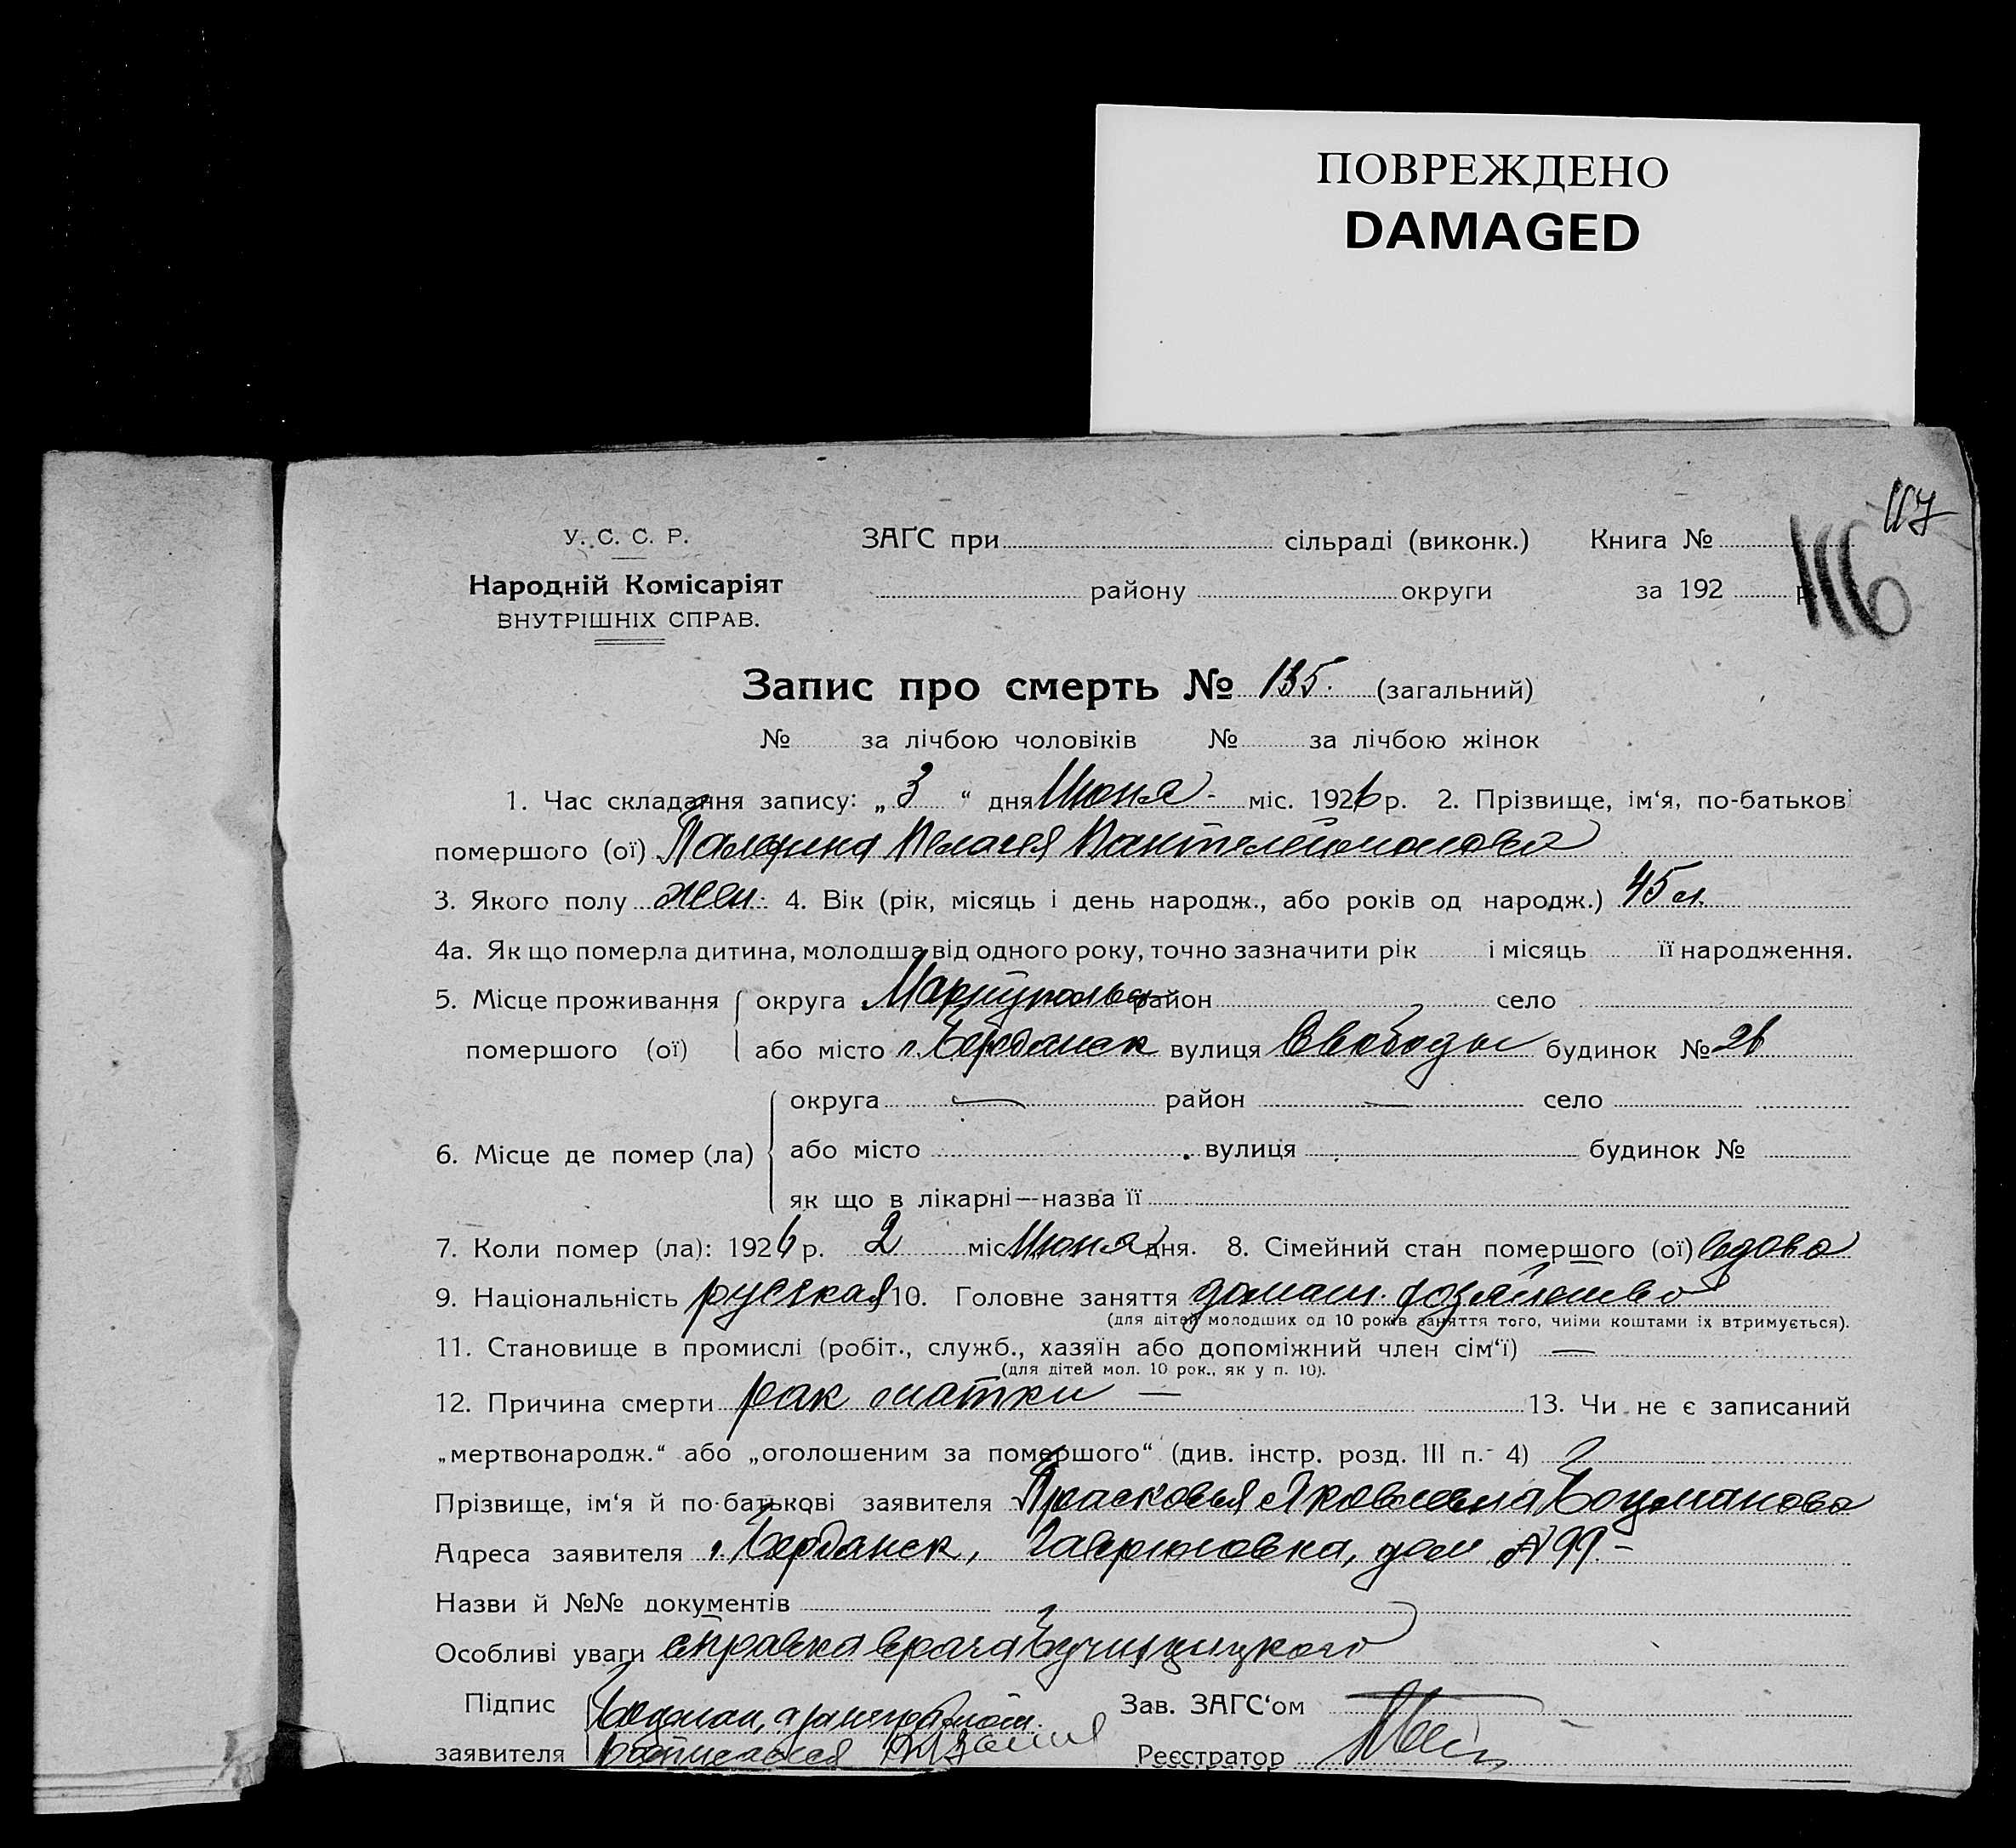 ПОВРЕЖДЕНО
DAMAGED
117
116
У. С. С. Р.
Народній Комісаріят
ВНУТРІШНІХ СПРАВ.
ЗАҐС при сільраді (виконк.) Книга №
району округи за 192 р
Запис про смерть № 135. (загальний)
№ за лічбою чоловіків № за лічбою жінок
1. Час складання запису: „3“ дня Июня - міс. 1926 р. 2. Прізвище, ім‘я, по-батькові
помершого (ої) Пелагея Пантелеймоновна
3. Якого полу жен. 4. Вік (рік, місяць і день народж., або років од народж.) 45 л.
4а. Як що померла дитина, молодша від одного року, точно зазначити рік і місяць її народження.
5. Місце проживання помершого (ої) округа Мариупольск район село
або місто г. Бердянск вулиця Свободы будинок №
6. Місце де помер (ла) округа — район — село
або місто вулиця будинок №
як що в лікарні—назва її
7. Коли помер (ла): 1926 р. 2 міс Июня дня. 8. Сімейний стан помершого (ої) вдова
9. Національність русская 10. Головне заняття домаш. хозяйство
(для дітей молодших од 10 років заняття того, чиїми коштами їх втримується).
11. Становище в промислі (робіт., служб., хазяїн або допоміжний член сім‘ї) —
(для дітей мол. 10 рок., як у п. 10).
12. Причина смерти рак матки — 13. Чи не є записаний
„мертвонародж.“ або „оголошеним за помершого“ (див. інстр. розд. III п. 4)
Прізвище, ім‘я й по-батькові заявителя Прасковья Яковлевна Боцманова
Адреса заявителя г. Бердянск, Гаврюковка, дом № 99 -
Назви й №№ документів
Особливі уваги справка врача
Підпис заявителя
Зав. ЗАГС‘ом
Реєстратор